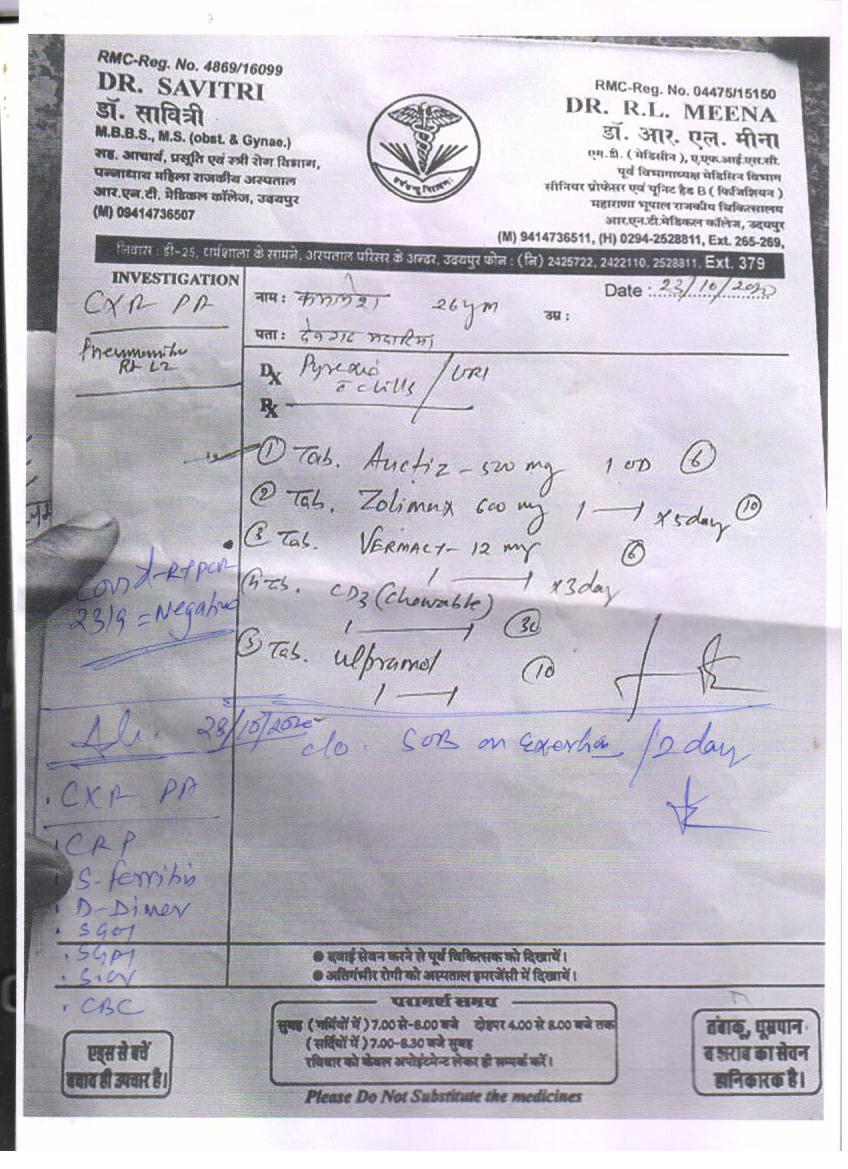 RMC-Reg. No. 4869/16099
DR. SAVITRI
डॉ. सावित्री
M.B.B.S., M.S. (obst. & Gynae.)
सह. आचार्य, प्रसूति एवं स्त्री रोग विभाग,
पन्नाधाय महिला राजकीय अस्पताल
आर.एन.टी. मेडिकल कॉलेज, उदयपुर
(M) 09414736507
RMC-Reg. No. 04475/15150
DR. R.L. MEENA
डॉ. आर. एल. मीना
एम.डी. ( मेडिसीन ), ए.एफ.आई.एस.सी.
पूर्व विभागाध्यक्ष मेडिसिन विभाग
सीनियर प्रोफेसर एवं यूनिट हैड B ( फिजिशियन )
महाराणा भूपाल राजकीय चिकित्सालय
आर.एन.टी.मेडिकल कॉलेज, उदयपुर
(M) 9414736511, (H) 0294-2528811, Ext. 265-269,
निवास : डी-25, धर्मशाला के सामने, अस्पताल परिसर के अन्दर, उदयपुर फोन : (नि) 2425722, 2422110, 2528811, Ext. 379
INVESTIGATION
CXR PA
Rt LZ
नाम : 26ym उम्र :
Date : 23/10/2020
पता : देवगढ मदारिया
Dx Pyrexia / URI
c chills
Rx
① Tab. - 500 mg 1 OD ⑥
② Tab. 600 mg 1 — 1 x 5day ⑩
③ Tab. VERMACT - 12 mg ⑥
1 — 1 x 3day
④ Tab. CD3 (Chewable)
1 — 1 ㉚
⑤ Tab. ulpramol ⑩
1 — 1
Covid-RTPCR
23/9 = Negative
28/10/2020
c/o. SOB on Exertion / 2 day
. CXR PA
. CRP
. S-ferritin
. D-Dimer
. SGOT
. SGPT
. CBC
● दवाई सेवन करने से पूर्व चिकित्सक को दिखायें।
● अतिगंभीर रोगी को अस्पताल इमरजेंसी में दिखायें।
परामर्श समय
सुबह ( गर्मियों में ) 7.00 से-8.00 बजे दोहपर 4.00 से 8.00 बजे तक
( सर्दियों में ) 7.00-8.30 बजे सुबह
रविवार को केवल अपोइंटमेन्ट लेकर ही सम्पर्क करें।
एड्स से बचें
बचाव ही उपचार है।
तंबाकू, धूम्रपान
व शराब का सेवन
हानिकारक है।
Please Do Not Substitute the medicines